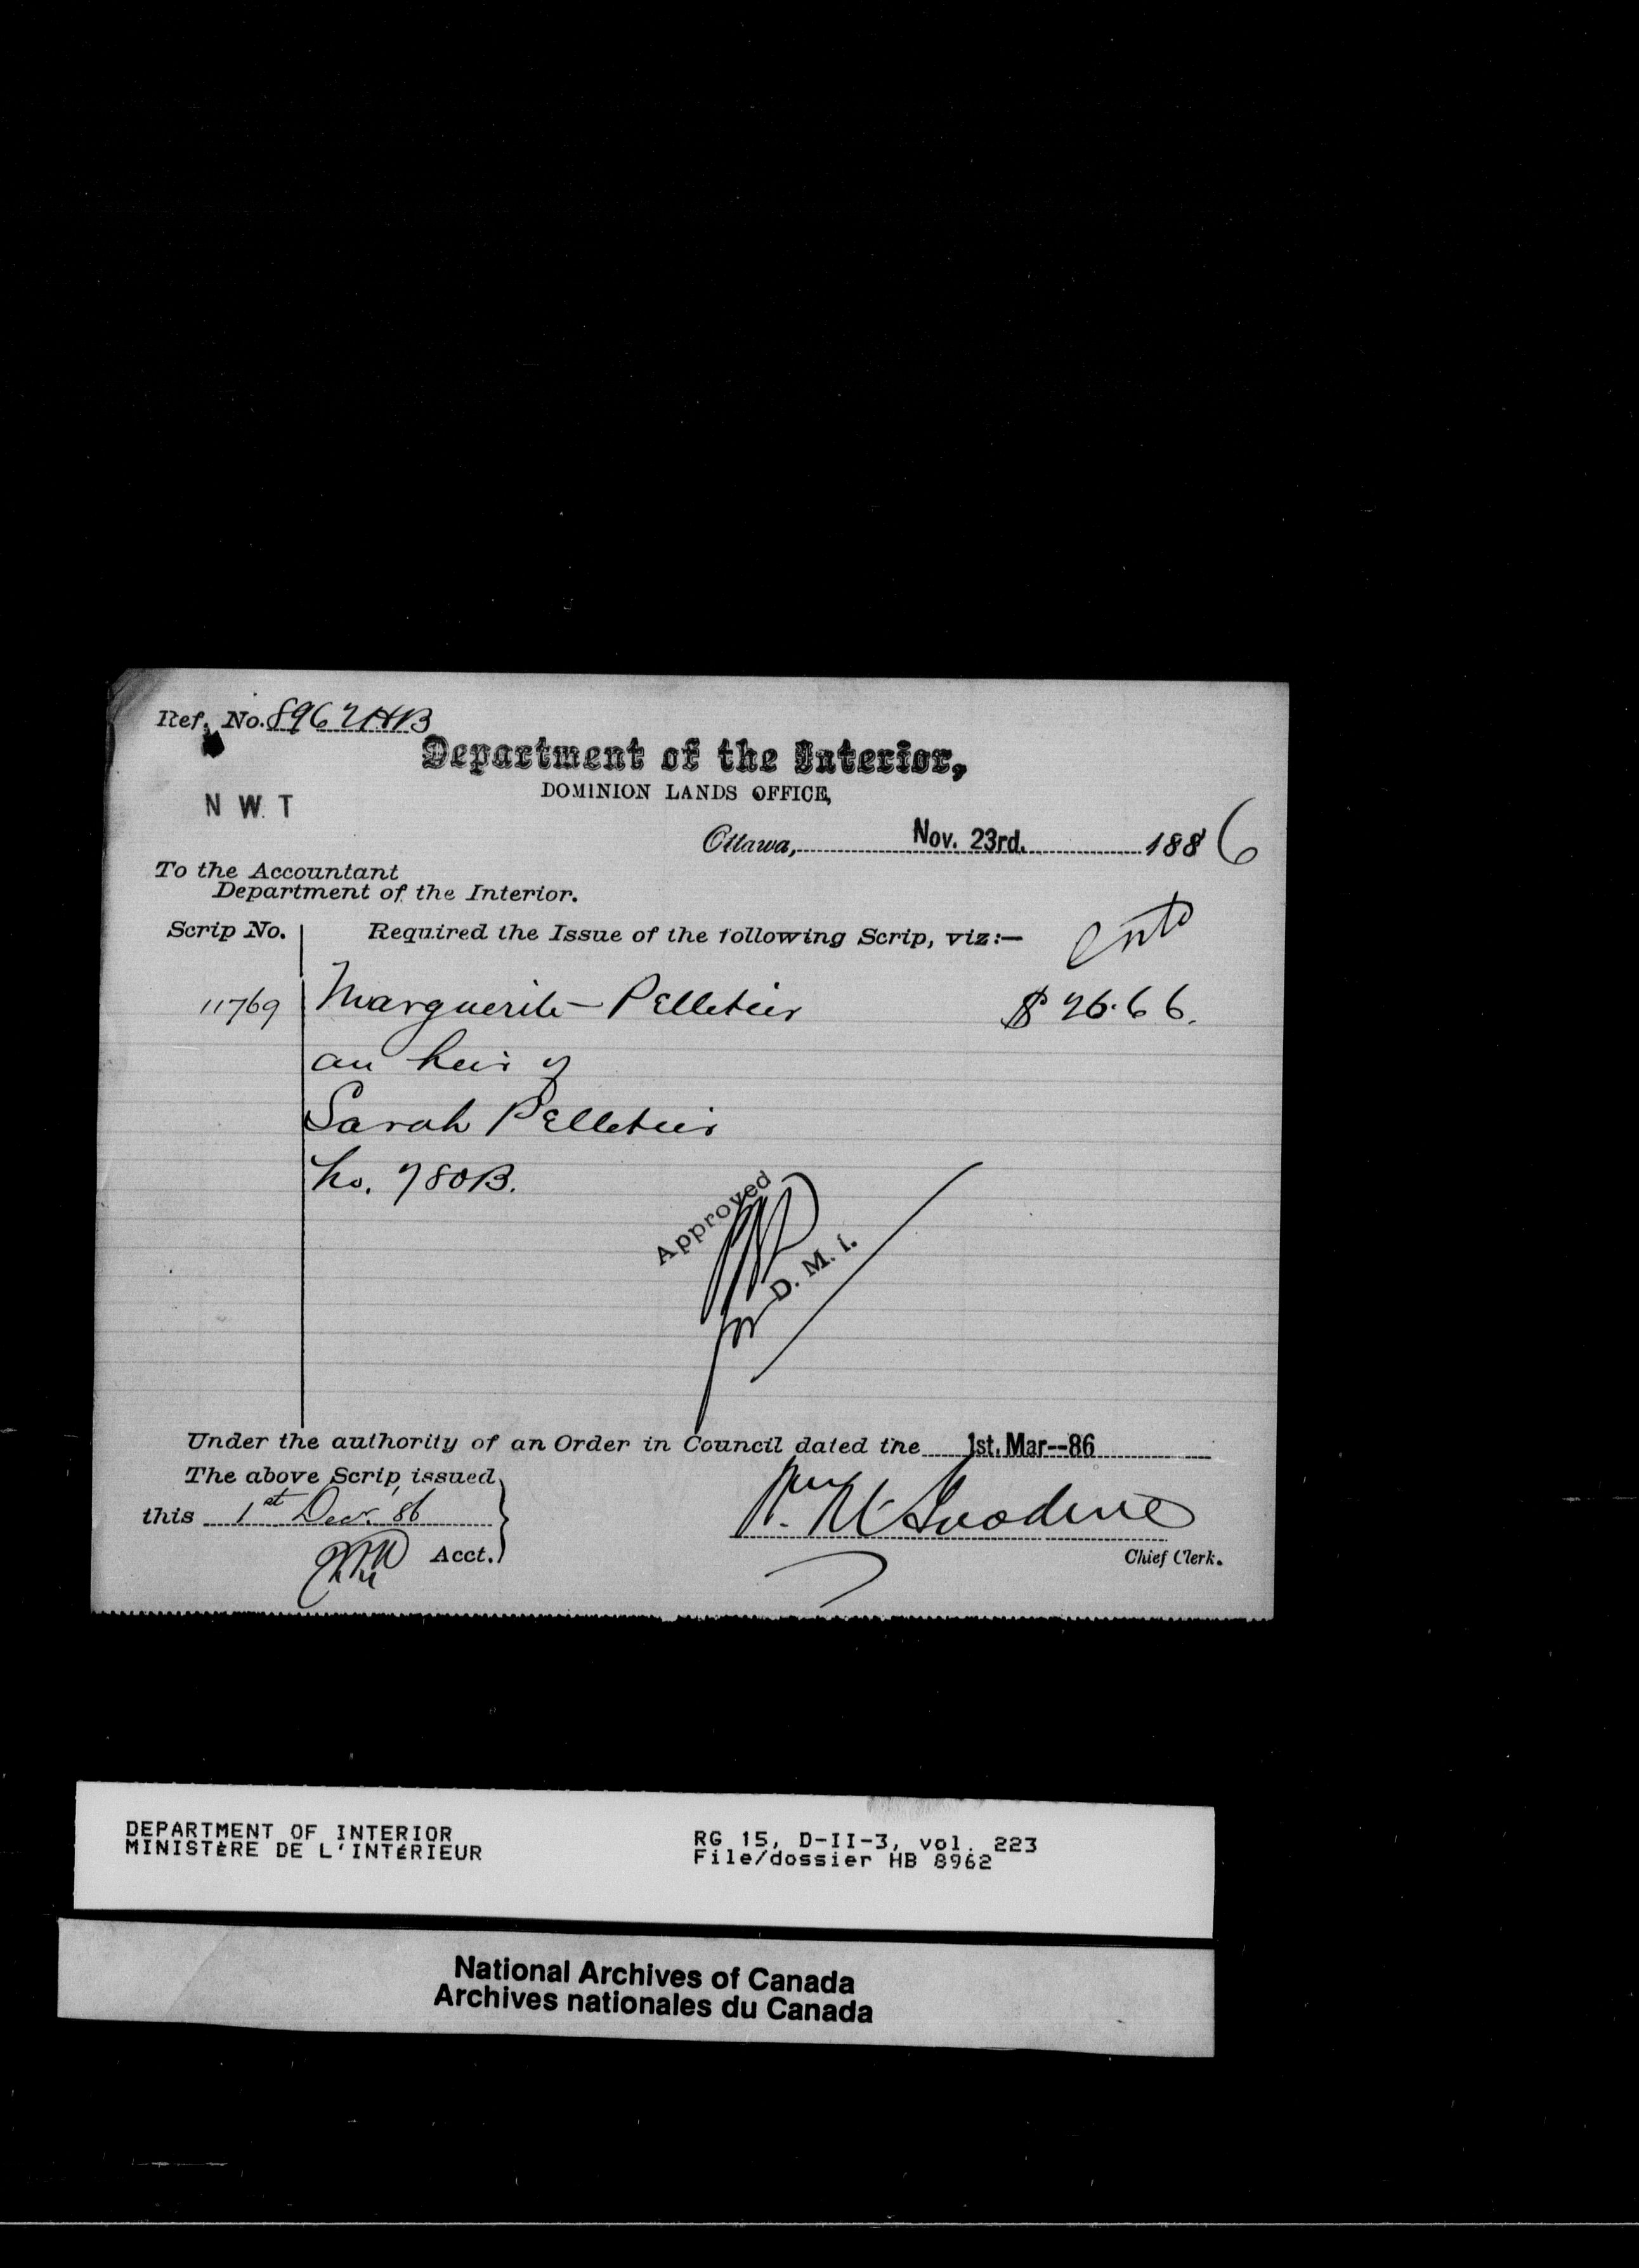 Ref. No. 8962 HB
Department of the Interior,
DOMINION LANDS OFFICE,
N W. T
Ottawa, Nov. 23rd. 1886
To the Accountant
Department of the Interior.
Scrip No. Required the Issue of the following Scrip, viz:—
11769 Marguerite Pelletier $26.66.
an heir of
Sarah Pelletier
No. 780B.
Approved
for D. M. I.
Under the authority of an Order in Council dated the 1st. Mar--86
The above Scrip issued
this 1st Dec. '86
Acct.
Chief Clerk.
DEPARTMENT OF INTERIOR
MINISTÈRE DE L'INTÉRIEUR
RG 15, D-II-3, vol. 223
File/dossier HB 8962
National Archives of Canada
Archives nationales du Canada